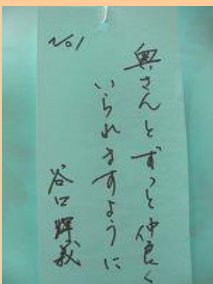 No1
奥さんとずっと仲良く
いられますように
谷口輝義